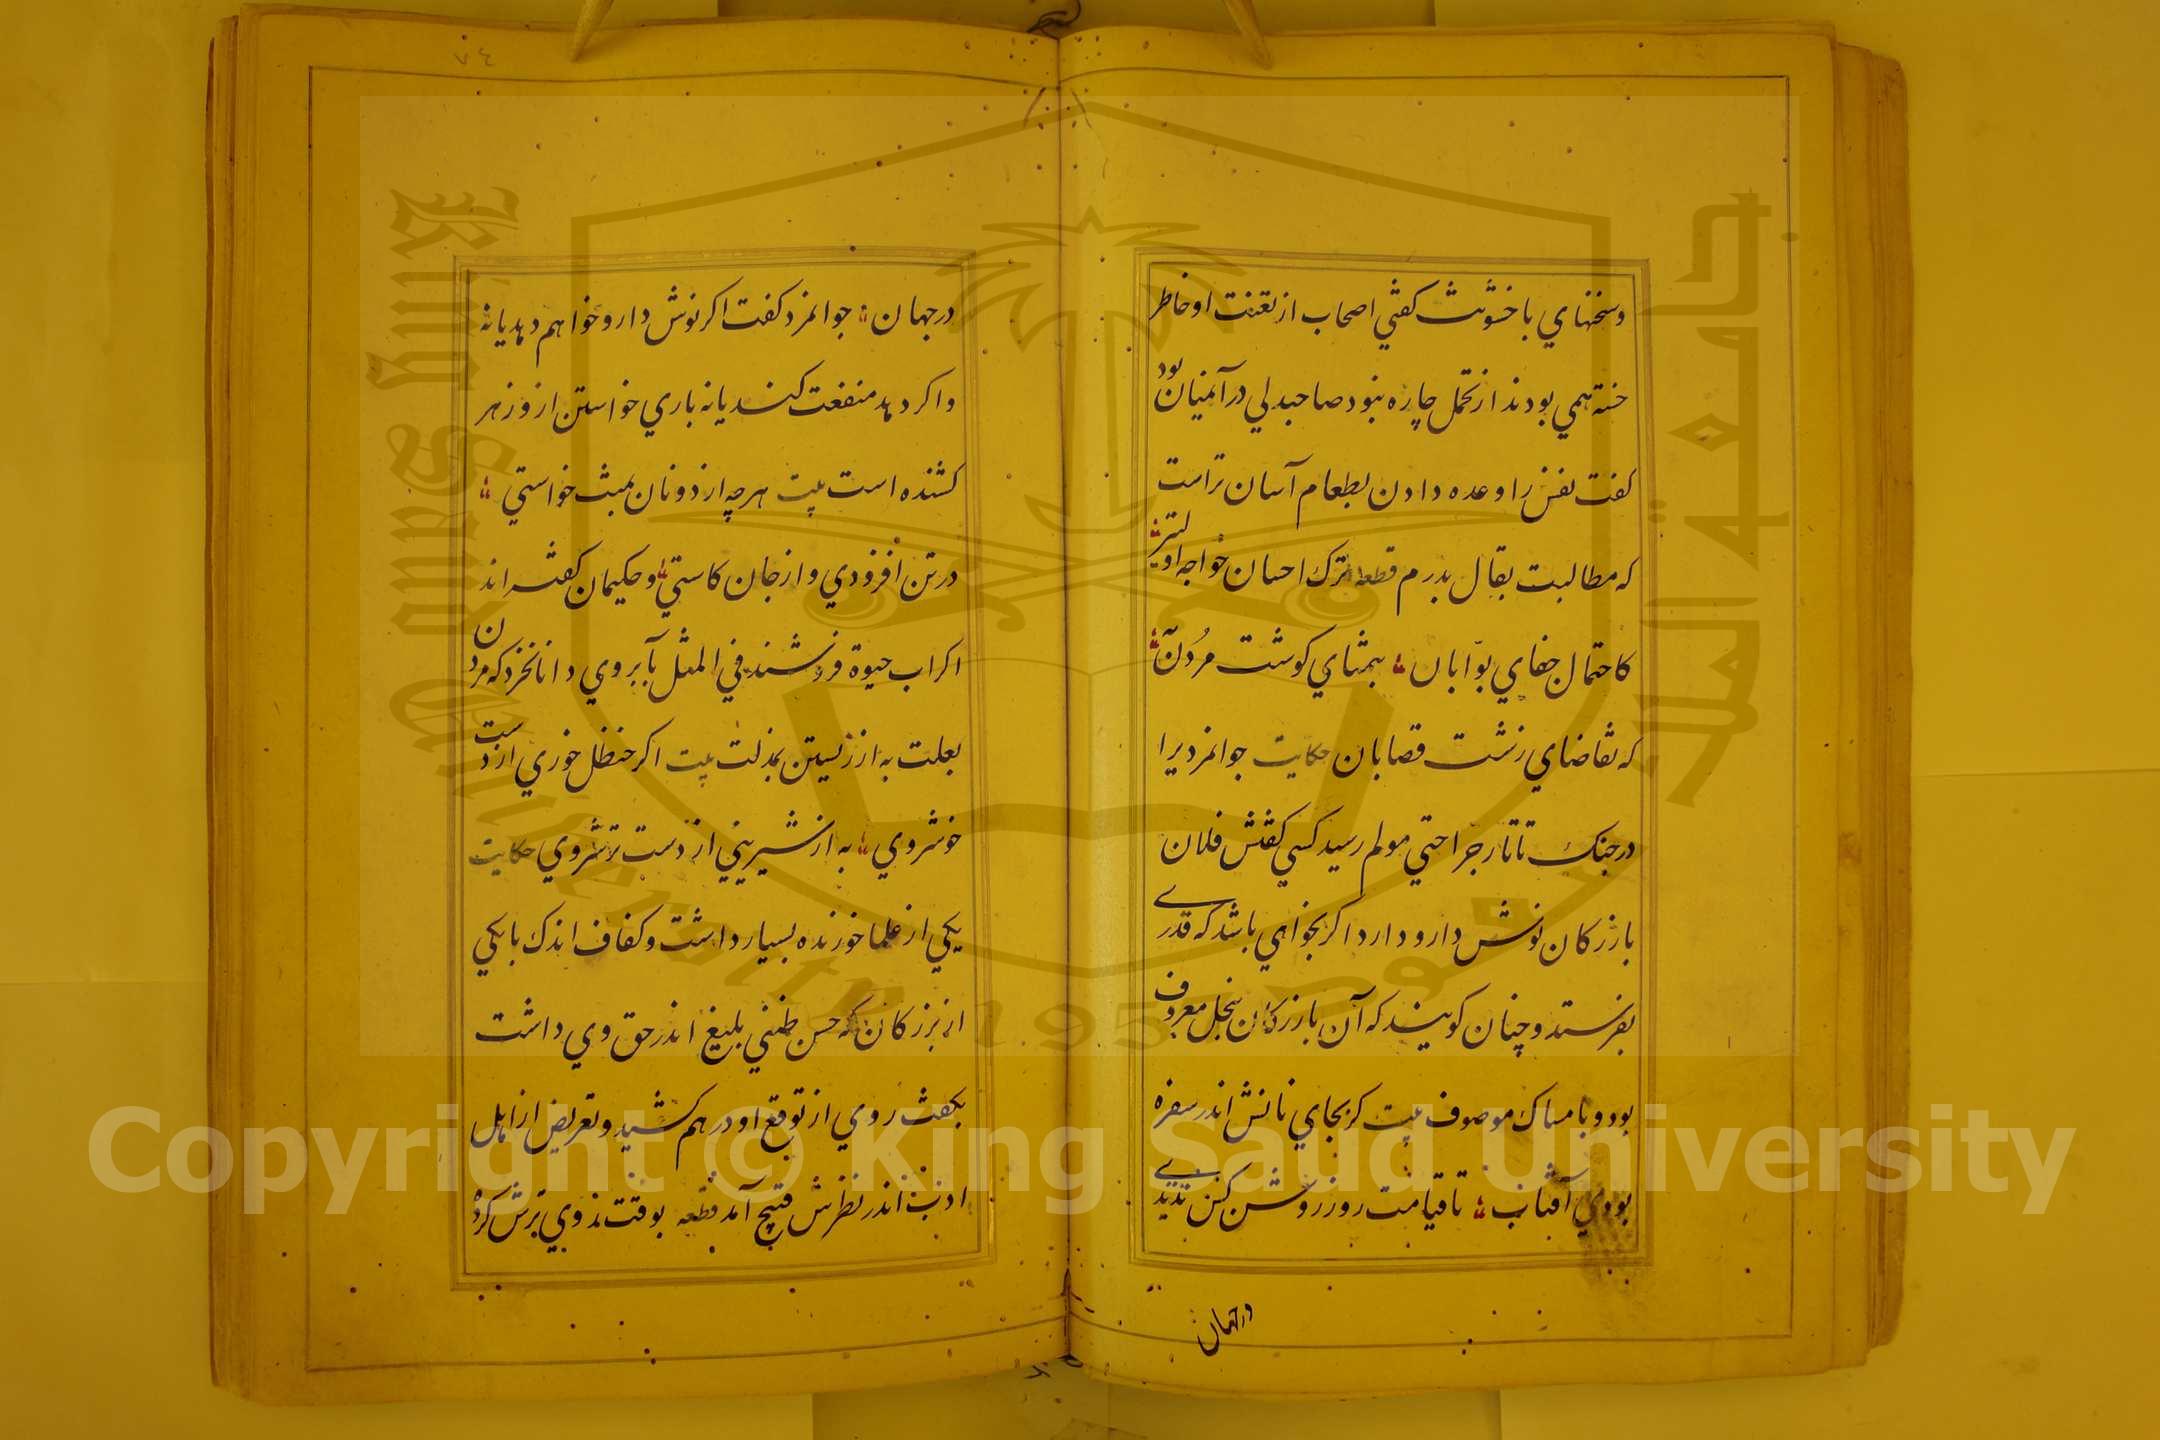 وسخنهاي باخشونت كفتي اصحاب از تعنت او خاطر
خسته همي بودند از تحمل چاره نبود صاحبدلي درآنميان بود
كفت نفس را وعده دادن بطعام آسان تر است
كه مطالبت بقال بدرم قطعه ترك احسان خواجه اوليتر
كاحتمال جفاي بوّابان بتمناي كوشت مُردن
كه تقاضاي زشت قصابان حكايت جوانمردي را
در جنك تاتار جراحتي مولم رسيد كسي كفتش فلان
بازركان نوش دارو دارد اكر بخواهي باشد كه قدري
بفرستد و چنان كويند كه آن بازركان ببخل معروف
بود و بامساك موصوف بيت كر بجاي نانش اندر سفره
بودي آفتاب تا قيامت روز روشن كس نديدي
درجهان
درجهان جوانمرد كفت اكر نوش دارو خواهم دهد يا نه
واكر دهد منفعت كند يا نه باري خواستن ازو زهر
كشنده است بيت هرچه از دونان بمنت خواستي
در تن افزودي و از جان كاستي و حكيمان كفته اند
اكر اب حيوة فروشند في المثل بآبروي دانا نخرد كه مردن
بعلت به از زيستن بمذلت بيت اكر حنظل خوري از دست
خوشروي به از شيريني از دست ترشروي حكايت
يكي از علما خورنده بسيار داشت و كفاف اندك با يكي
از بزركان كه حسن ظني بليغ اندر حق وي داشت
بكفت روي از توقع او درهم كشيد و تعريض از اهل
ادب اندر نظرش قبيح آمد قطعه بوقت
٧٤
جامعة الملك سعود
King Saud University
1957
Copyright © King Saud University